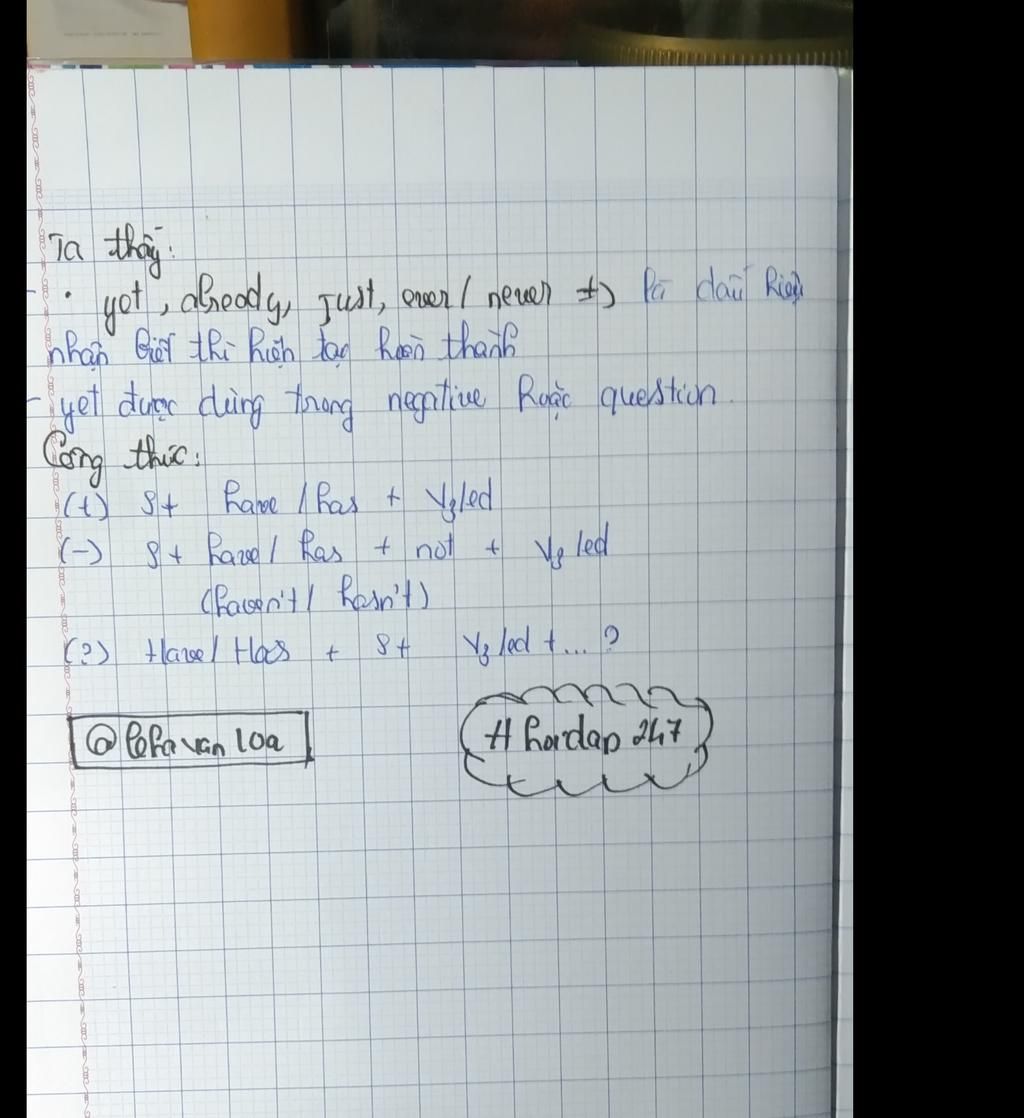 Ta thấy:
- • yet, already, just, ever / never => là dấu hiệu
nhận biết thì hiện tại hoàn thành
- yet được dùng trong negative hoặc question.
Công thức:
(+) S + have / has + V3/ed
(-) S + have / has + not + V3/ed
(haven't / hasn't)
(?) Have / Has + S + V3/ed + ... ?
# hoidap 247